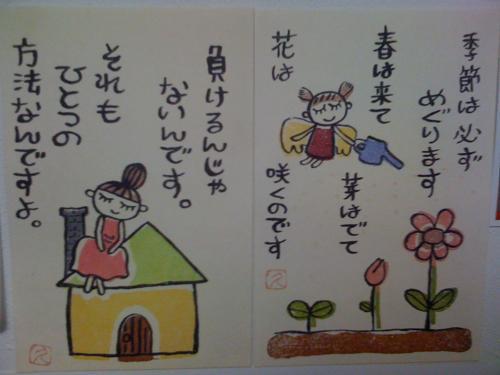 季節は必ず
めぐります
春は来て
芽はでて
花は
咲くのです
負けるんじゃ
ないんです。
それも
ひとつの
方法なんですよ。